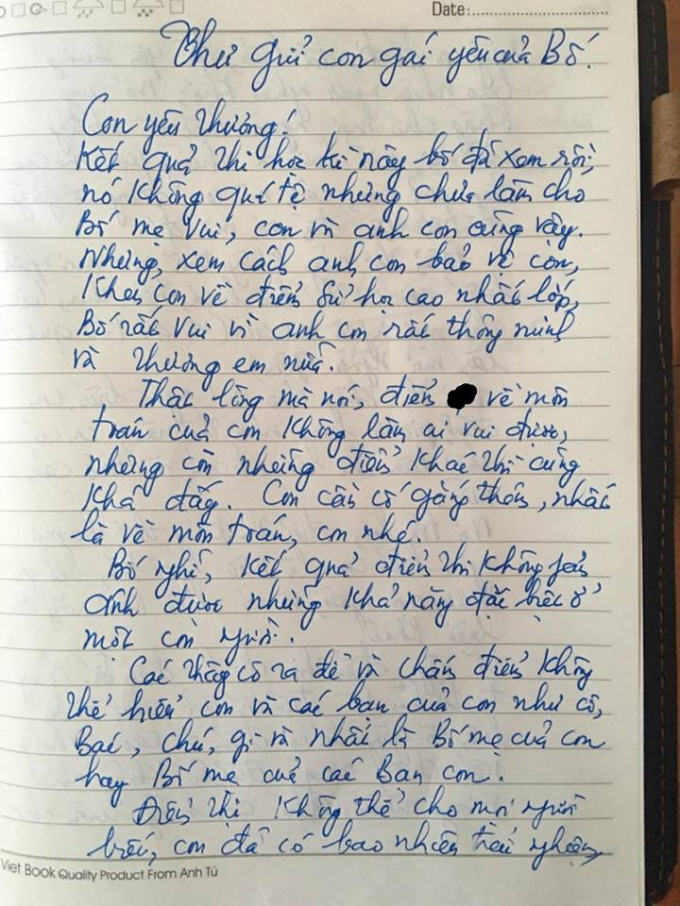 Date:
Thư gửi con gái yêu của Bố.
Con yêu thương!
Kết quả thi học kì này bố đã xem rồi,
nó không quá tệ nhưng chưa làm cho
Bố mẹ vui, con và anh con cũng vậy.
Nhưng, xem cách anh con bảo vệ con,
Khoe con về điểm sử học cao nhất lớp,
Bố rất vui vì anh con rất thông minh
và thương em nữa.
Thật lòng mà nói, điểm về môn
toán của con không làm ai vui được,
nhưng còn những điểm khác thì cũng
khá đấy. Con cần cố gắng thêm, nhất
là về môn toán, con nhé.
Bố nghĩ, kết quả điểm thi không phản
ánh được những khả năng đặc biệt ở
một con người.
Các thầy cô ra đề và chấm điểm không
thể hiểu con và các bạn của con như cô,
Bác, chú, gì và nhất là Bố mẹ của con
hay Bố mẹ của các Bạn con.
Điểm thi không thể cho mọi người
biết, con đã có bao nhiêu trải nghiệm,
Viet Book Quality Product From Anh Tú